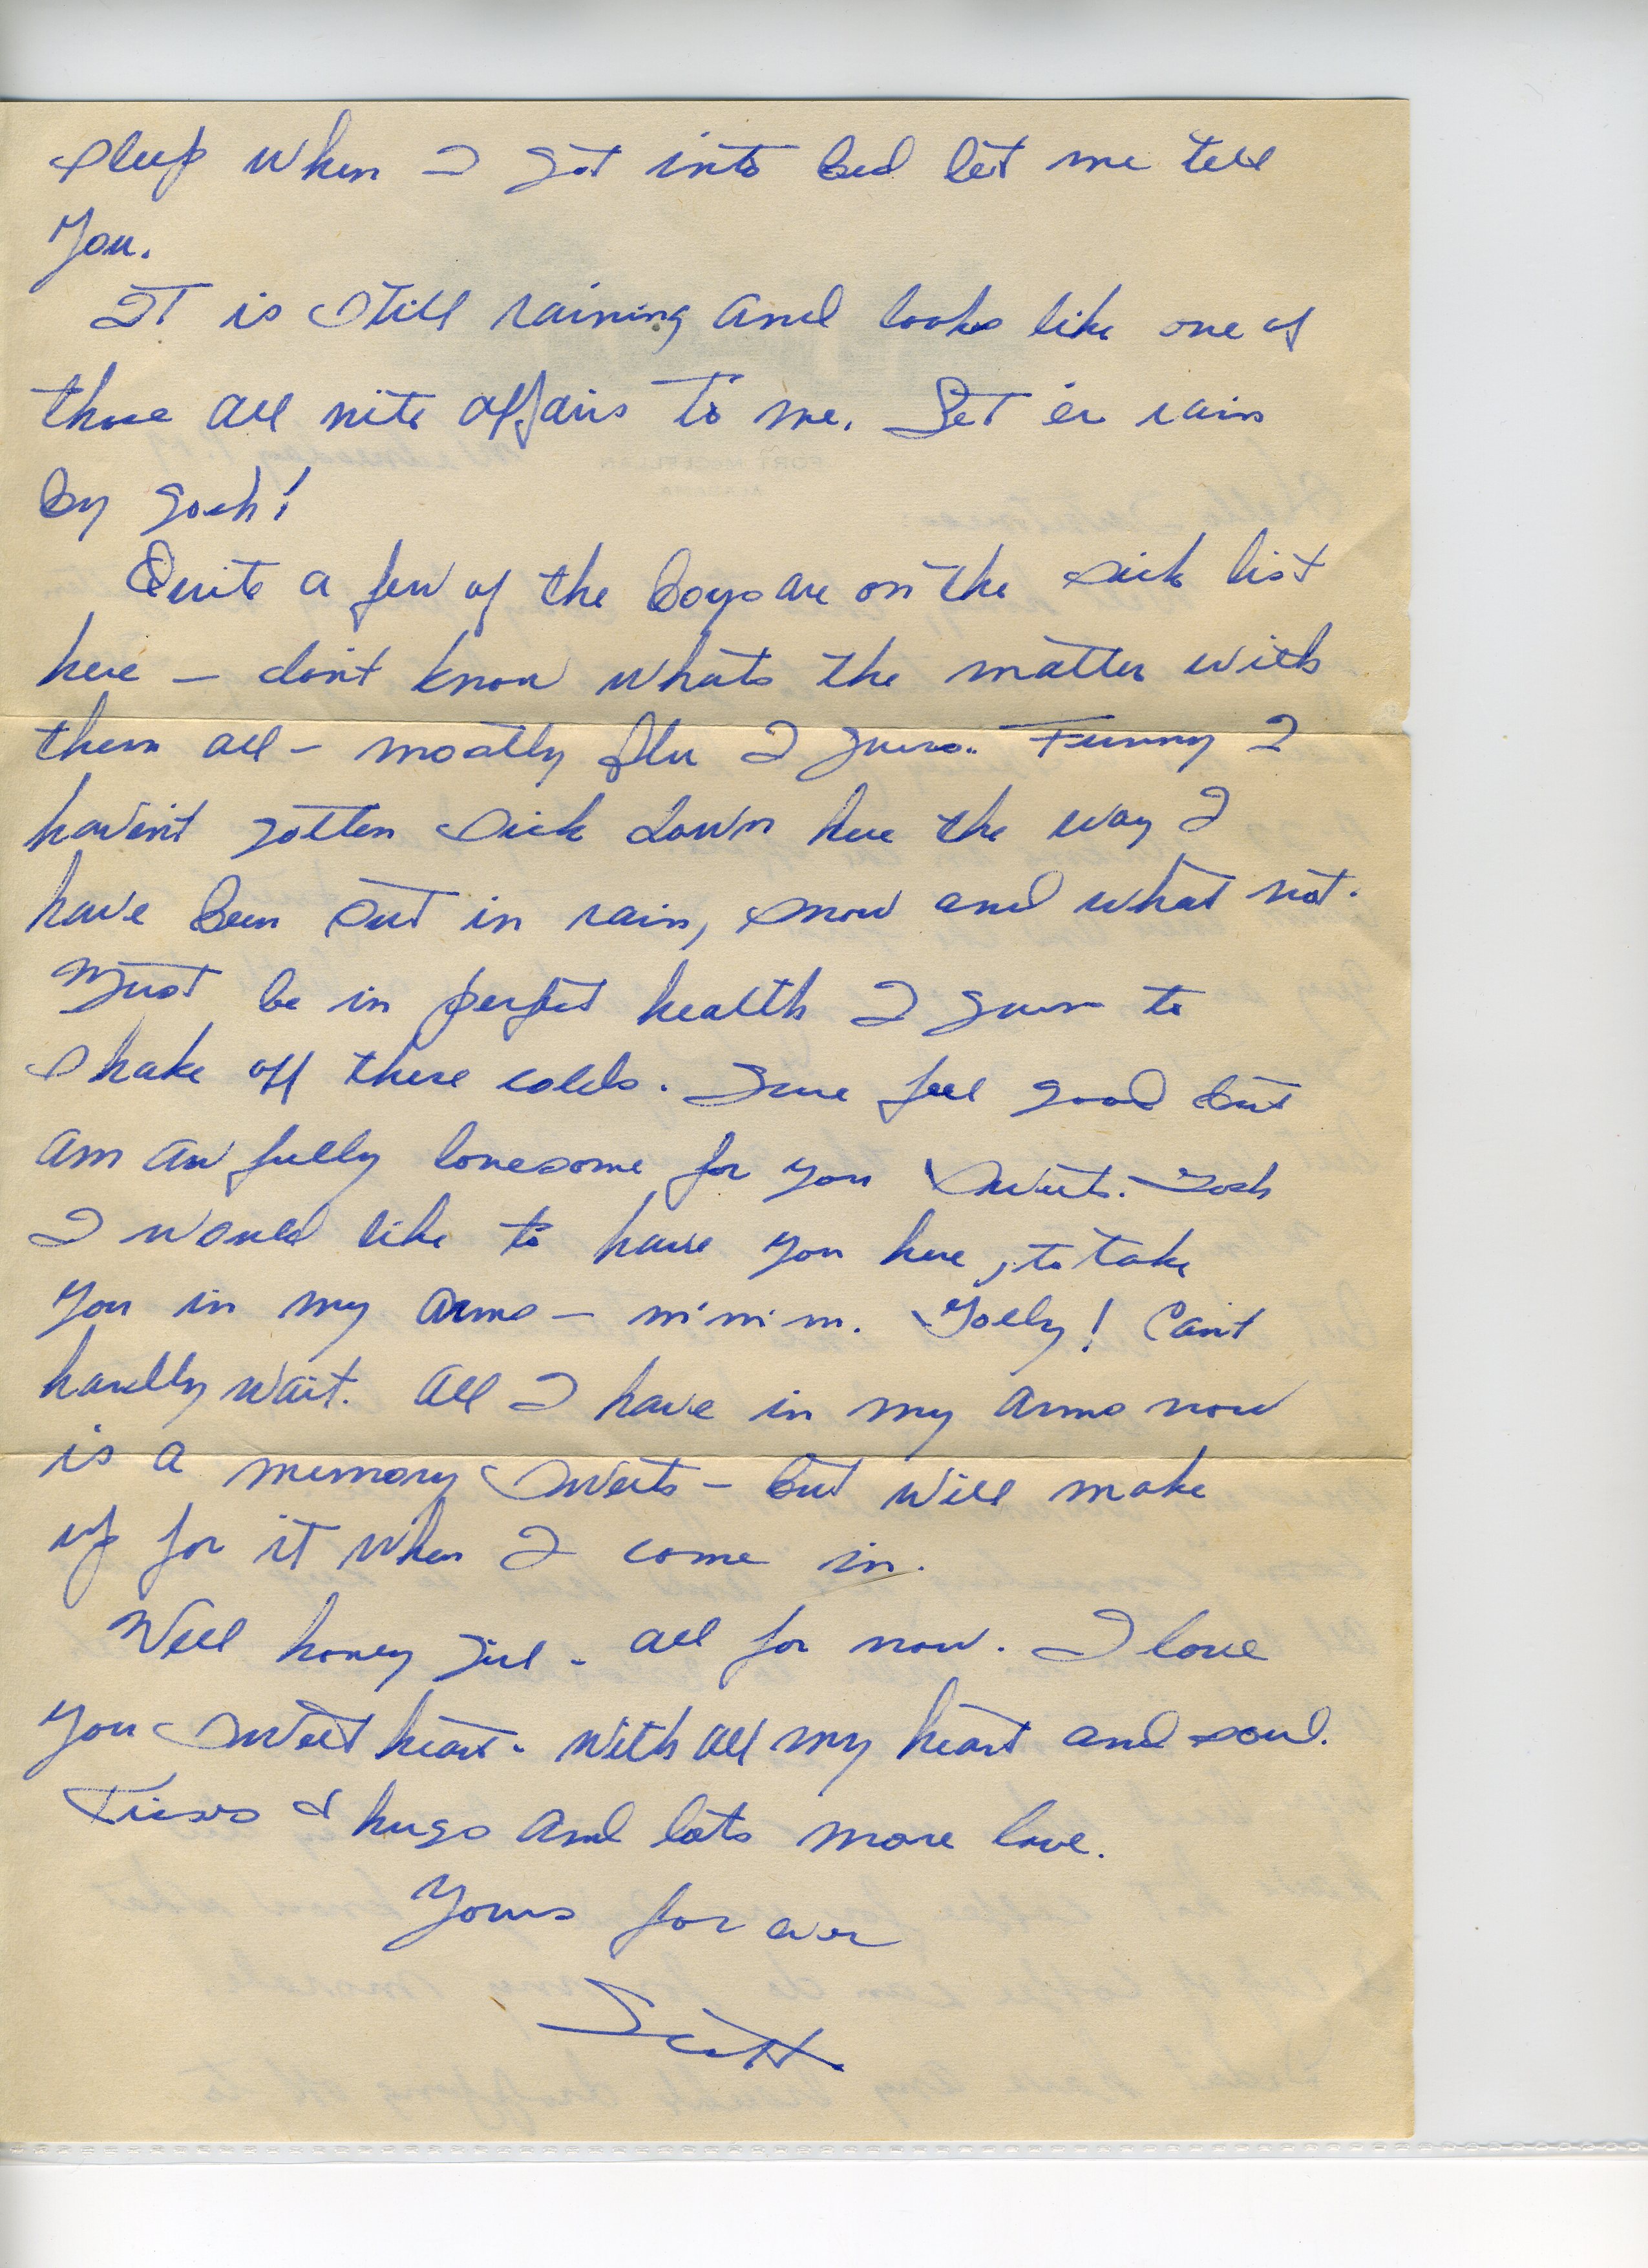 sleep when I got into bed let me tell
you.
It is still raining and looks like one of
those all nite affairs to me. Let er rain
by gosh!
Quite a few of the boys are on the sick list
here — don't know whats the matter with
them all — mostly flu I guess. Funny I
haven't gotten sick down here the way I
have been out in rain, snow and what not.
Must be in perfect health I guess to
shake off these colds. Sure feel good but
am awfully lonesome for you sweets. Gosh
I would like to have you here, to take
you in my arms — m'm'm. Golly! Can't
hardly wait. All I have in my arms now
is a memory sweets — but will make
up for it when I come in.
Well honey girl - all for now. I love
you sweetheart - with all my heart and soul.
Kisses & hugs and lots more love.
Yours for ever
Scott